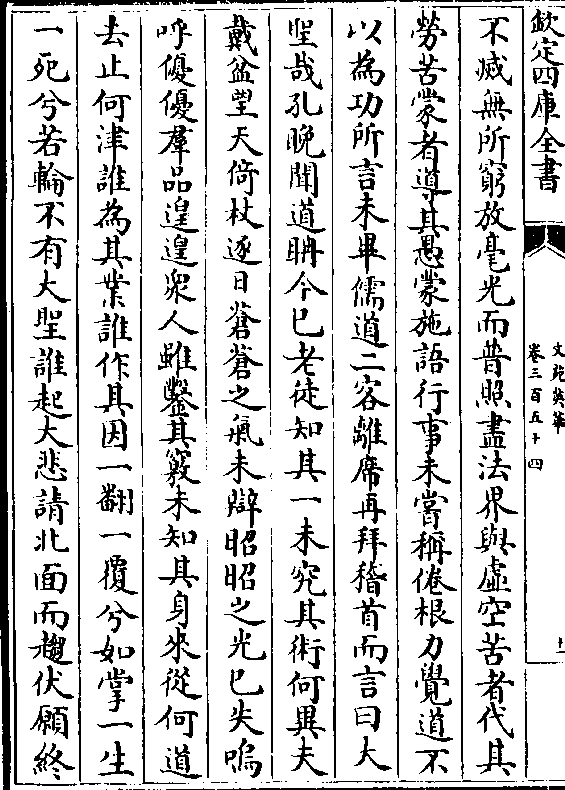 欽定四庫全書
文苑英華
卷三百五十四
十一
不滅無所窮放毫光而普照盡法界與虛空苦者代其
勞苦蒙者導其愚蒙施語行事未嘗稱倦根力覺道不
以為功所言未畢儒道二客離席再拜稽首而言曰大
聖哉孔晚聞道聃今已老徒知其一未究其術何異夫
戴盆望天倚杖逐日蒼蒼之氣未辯昭昭之光已失嗚
呼優優羣品遑遑衆人雖鑿其竅未知其身來從何道
去止何津誰為其業誰作其因一翻一覆兮如掌一生
一死兮若輪不有大聖誰起大悲請北面而趨伏願終